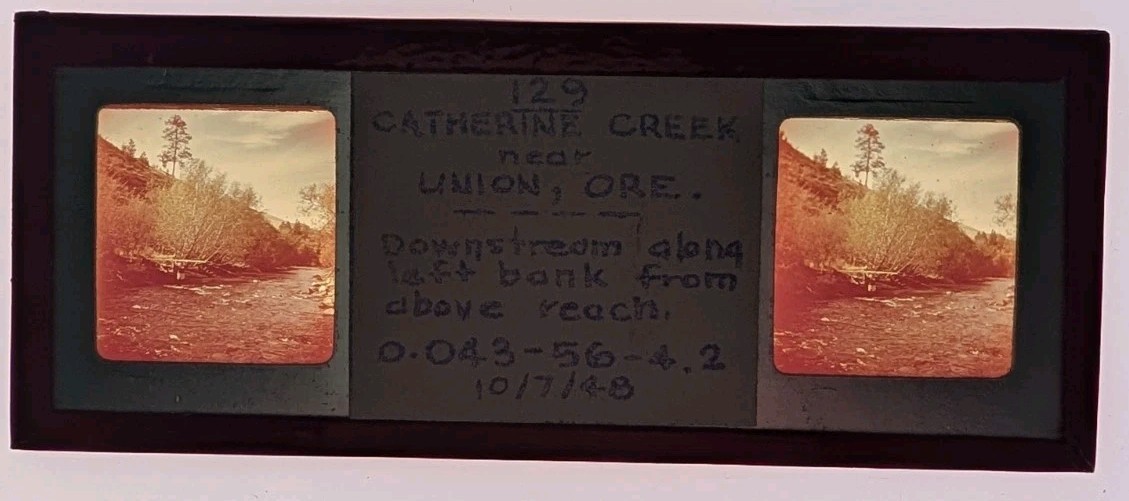 129
CATHERINE CREEK
near
UNION, ORE.
Downstream along
left bank from
above reach.
0.043-56-4.2
10/7/48